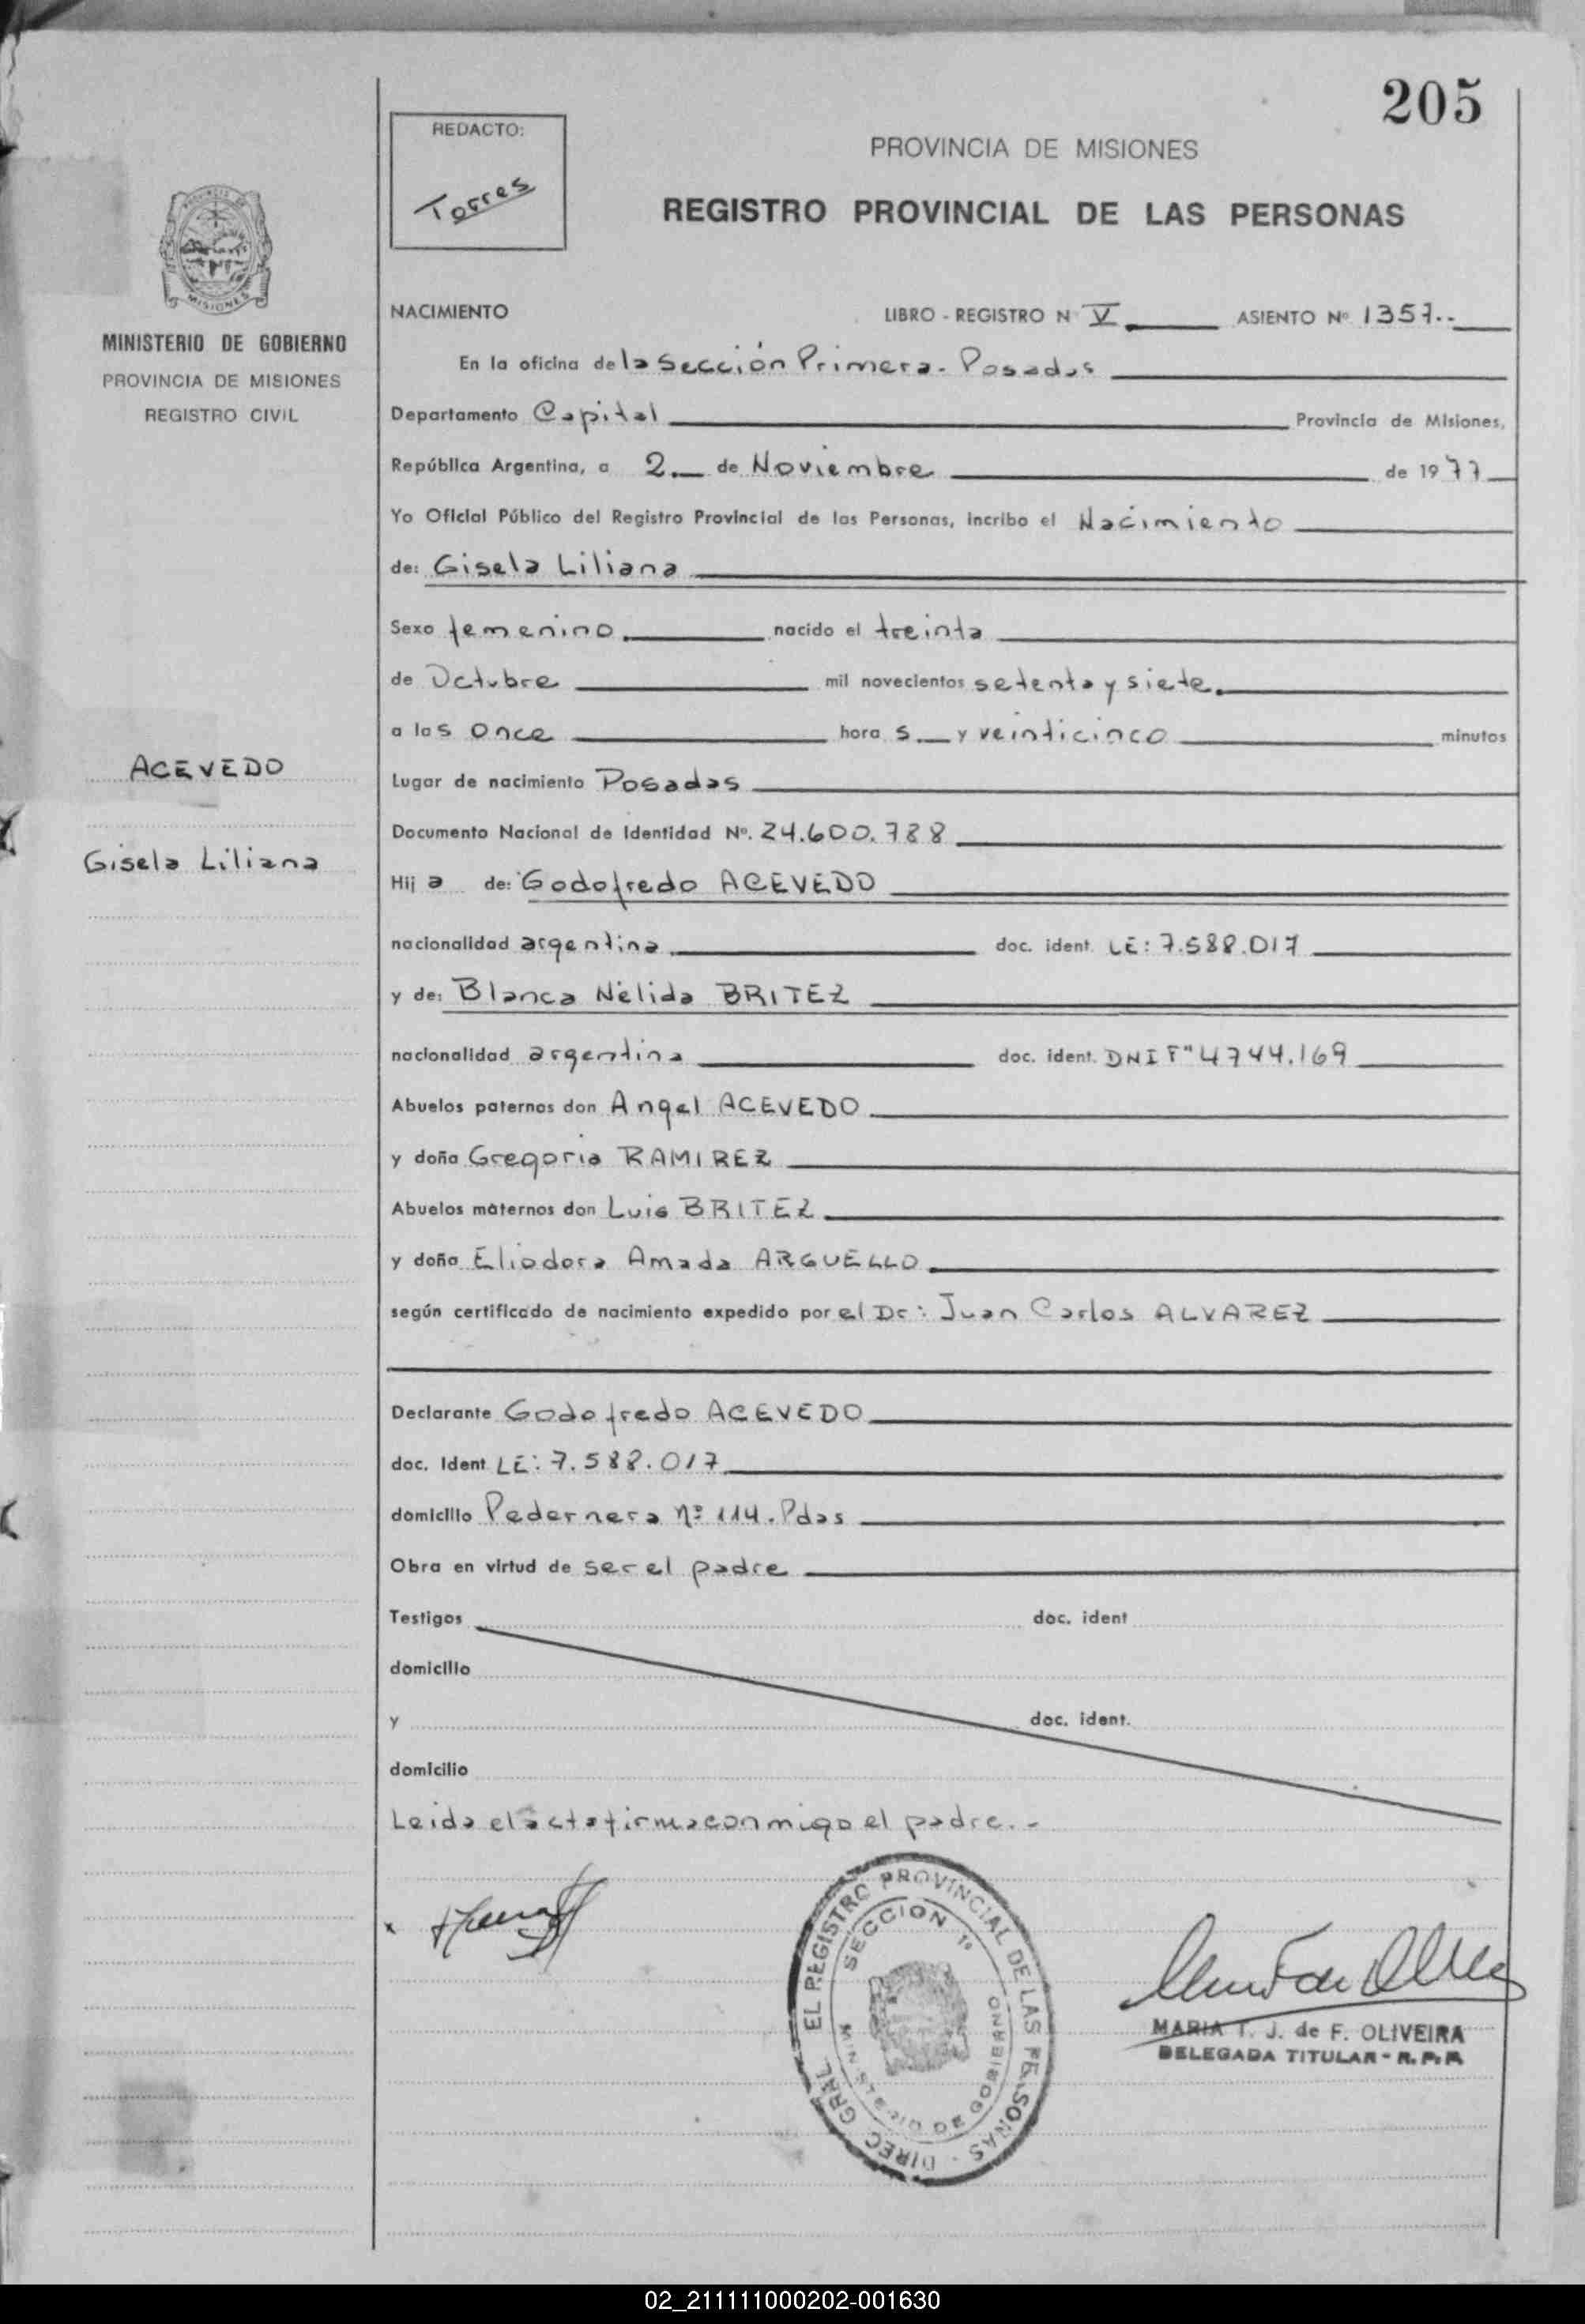 205
REDACTO:
Torres
PROVINCIA DE MISIONES
REGISTRO PROVINCIAL DE LAS PERSONAS
MISIONES
MINISTERIO DE GOBIERNO
PROVINCIA DE MISIONES
REGISTRO CIVIL
ACEVEDO
Gisela Liliana
NACIMIENTO LIBRO - REGISTRO N V ASIENTO Nº 1357.-
En la oficina de la Sección Primera - Posadas
Departamento Capital Provincia de Misiones,
República Argentina, a 2 de Noviembre de 1977
Yo Oficial Público del Registro Provincial de las Personas, incribo el Nacimiento
de: Gisela Liliana
Sexo femenino nacido el treinta
de Octubre mil novecientos setenta y siete.
a las once hora s y veinticinco minutos
Lugar de nacimiento Posadas
Documento Nacional de Identidad Nº. 24.600.788
Hij a de: Godofredo ACEVEDO
nacionalidad argentina doc. ident. LE: 7.588.017
y de: Blanca Nélida BRITEZ
nacionalidad argentina doc. ident. DNI F" 4744.169
Abuelos paternos don Angel ACEVEDO
y doña Gregoria RAMIREZ
Abuelos maternos don Luis BRITEZ
y doña Eliodora Amada ARGUELLO
según certificado de nacimiento expedido por el Dr: Juan Carlos ALVAREZ
Declarante Godofredo ACEVEDO
doc. Ident LE: 7.588.017
domicilio Pedernera Nº 114. Pdas
Obra en virtud de ser el padre
Testigos doc. ident
domicilio
y doc. ident.
domicilio
Leida el acta firma conmigo el padre.-
DIREC GRAL EL REGISTRO PROVINCIAL DE LAS PERSONAS
SECCION 1ª
MINISTERIO DE GOBIERNO
MARIA T. J. de F. OLIVEIRA
DELEGADA TITULAR - R.P.P.
02_211111000202-001630